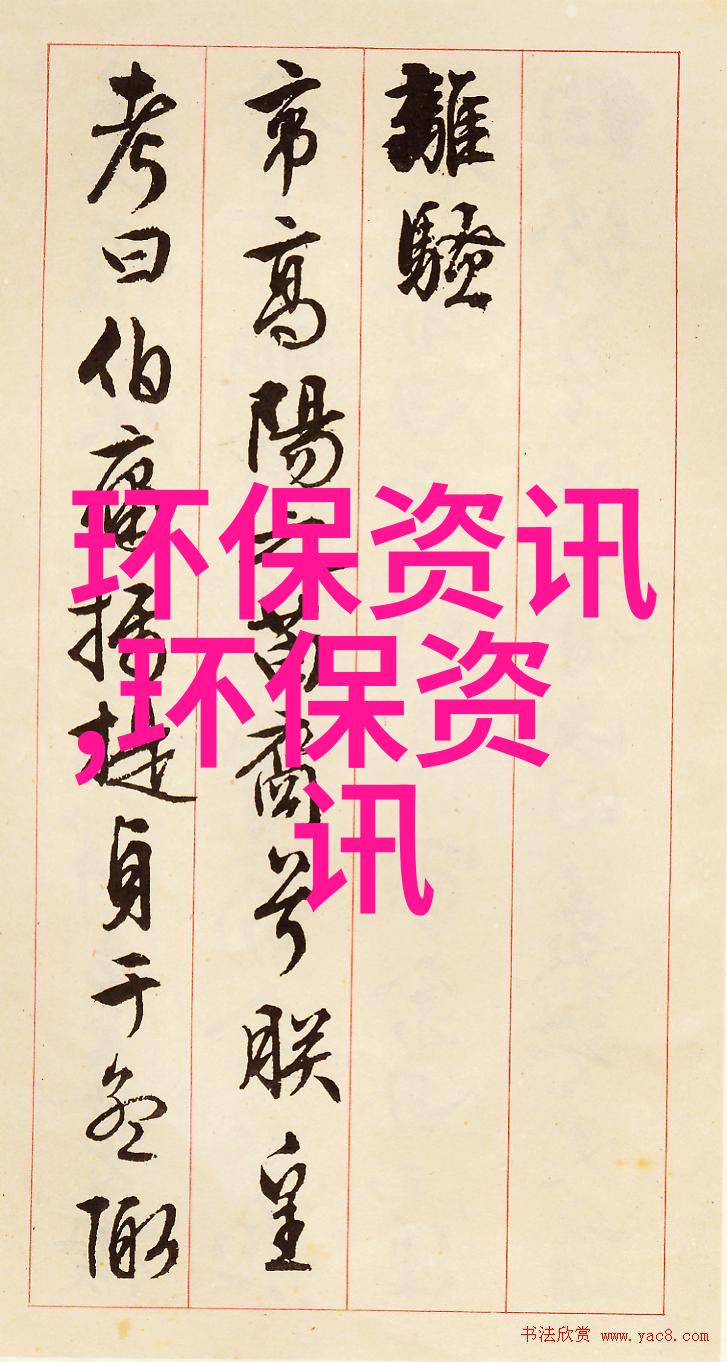 離騷
帝高陽之苗裔兮朕皇
考曰伯庸攝提貞于孟陬
环保资讯
,环保资
讯
书法欣赏 www.yac8.com